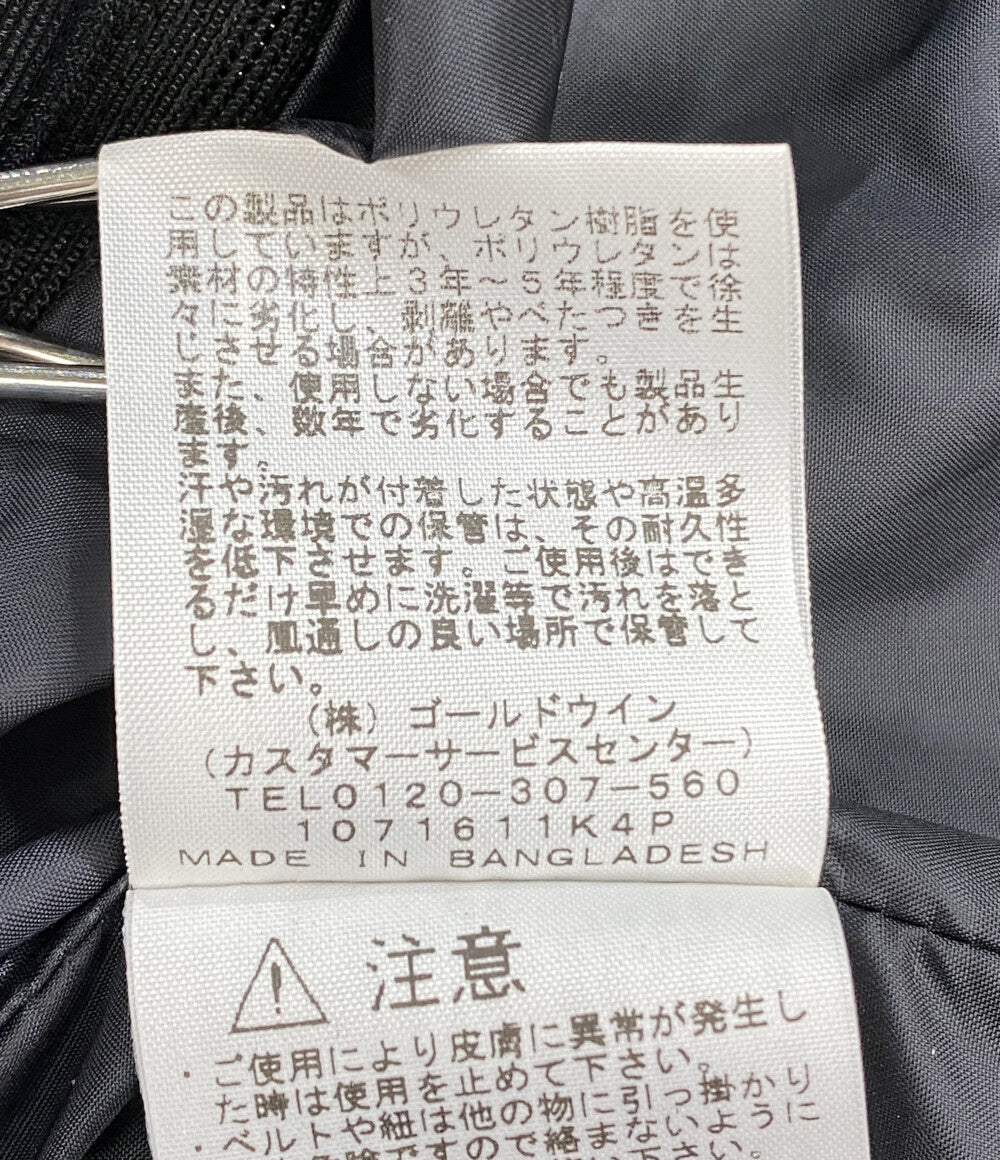 この製品はポリウレタン樹脂を使
用していますが、ポリウレタンは
素材の特性上3年～5年程度で徐
々に劣化し、剥離やべたつきを生
じさせる場合があります。
また、使用しない場合でも製品生
産後、数年で劣化することがあり
ます。
汗や汚れが付着した状態や高温多
湿な環境での保管は、その耐久性
を低下させます。ご使用後はでき
るだけ早めに洗濯等で汚れを落と
し、風通しの良い場所で保管して
下さい。
(株)ゴールドウイン
(カスタマーサービスセンター)
TEL0120-307-560
1071611K4P
MADE IN BANGLADESH
注意
・ご使用により皮膚に異常が発生し
た時は使用を止めて下さい。
・ベルトや紐は他の物に引っ掛かり
ですので絡まないように
下さい。